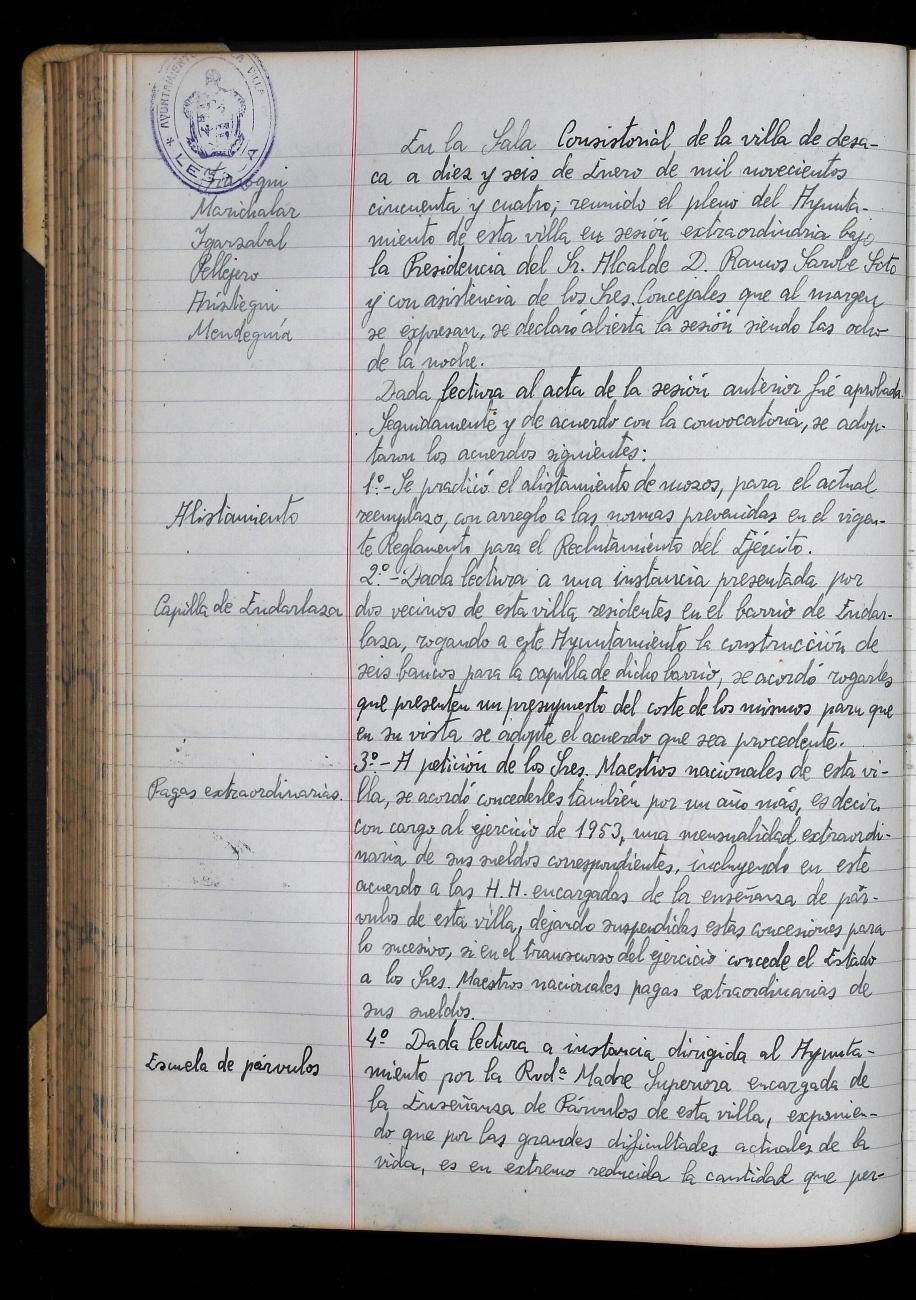 AYUNTAMIENTO DE LA VILLA
* LESACA
Marichalar
Igarzabal
Pellejero
Aristegui
Mendeguía
En la Sala Consistorial de la villa de Lesa-
ca a diez y seis de Enero de mil novecientos
cincuenta y cuatro; reunido el pleno del Ayunta-
miento de esta villa en sesión extraordinaria bajo
la Presidencia del Sr. Alcalde D. Ramos Sarobe Soto
y con asistencia de los Sres. Concejales que al margen
se expresan, se declaró abierta la sesión siendo las ocho
de la noche.
Dada lectura al acta de la sesión anterior fué aprobada.
Seguidamente y de acuerdo con la convocatoria, se adop-
taron los acuerdos siguientes:
Alistamiento
1º.- Se practicó el alistamiento de mozos, para el actual
reemplazo, con arreglo a las normas prevenidas en el vigen-
te Reglamento para el Reclutamiento del Ejército.
Capilla de Endarlaza
2º.- Dada lectura a una instancia presentada por
dos vecinos de esta villa residentes en el barrio de Endar-
laza, rogando a este Ayuntamiento la construcción de
seis bancos para la capilla de dicho barrio, se acordó rogarles
que presenten un presupuesto del coste de los mismos para que
en su vista se adopte el acuerdo que sea procedente.
Pagas extraordinarias.
3º.- A petición de los Sres. Maestros nacionales de esta vi-
lla, se acordó concederles también por un año más, es decir,
con cargo al ejercicio de 1953, una mensualidad extraordi-
naria de sus sueldos correspondientes, incluyendo en este
acuerdo a las H.H. encargadas de la enseñanza de pár-
vulos de esta villa, dejando suspendidas estas concesiones para
lo sucesivo, si en el transcurso del ejercicio concede el Estado
a los Sres. Maestros nacionales pagas extraordinarias de
sus sueldos.
Escuela de párvulos
4º Dada lectura a instancia dirigida al Ayunta-
miento por la Rvdª Madre Superiora encargada de
la Enseñanza de Párvulos de esta villa, exponien-
do que por las grandes dificultades actuales de la
vida, es en extremo reducida la cantidad que per-